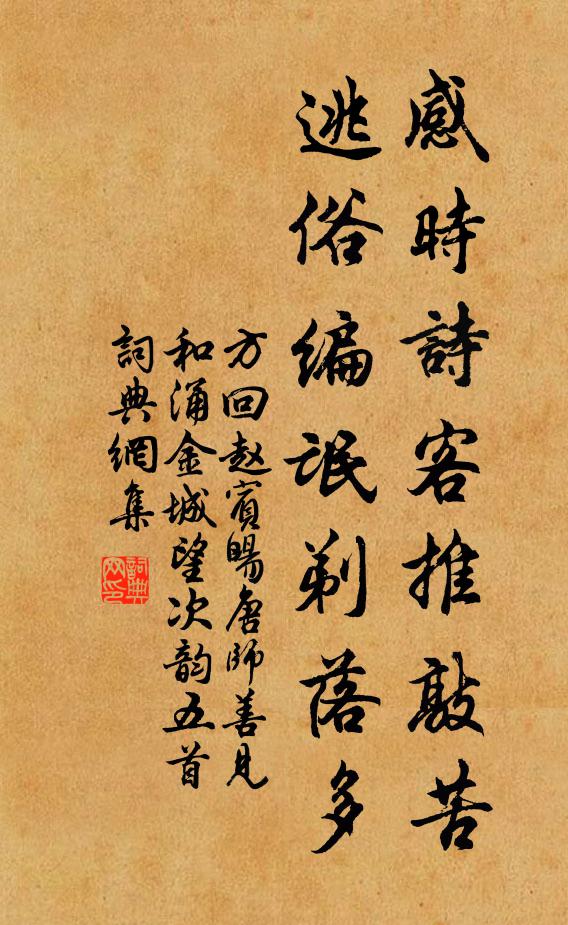 感時詩客推敲苦
逃俗編氓剃落多
方回赵賓暘唐師善見
和涌金城望次韵五首
詞典網集
詞典
网印